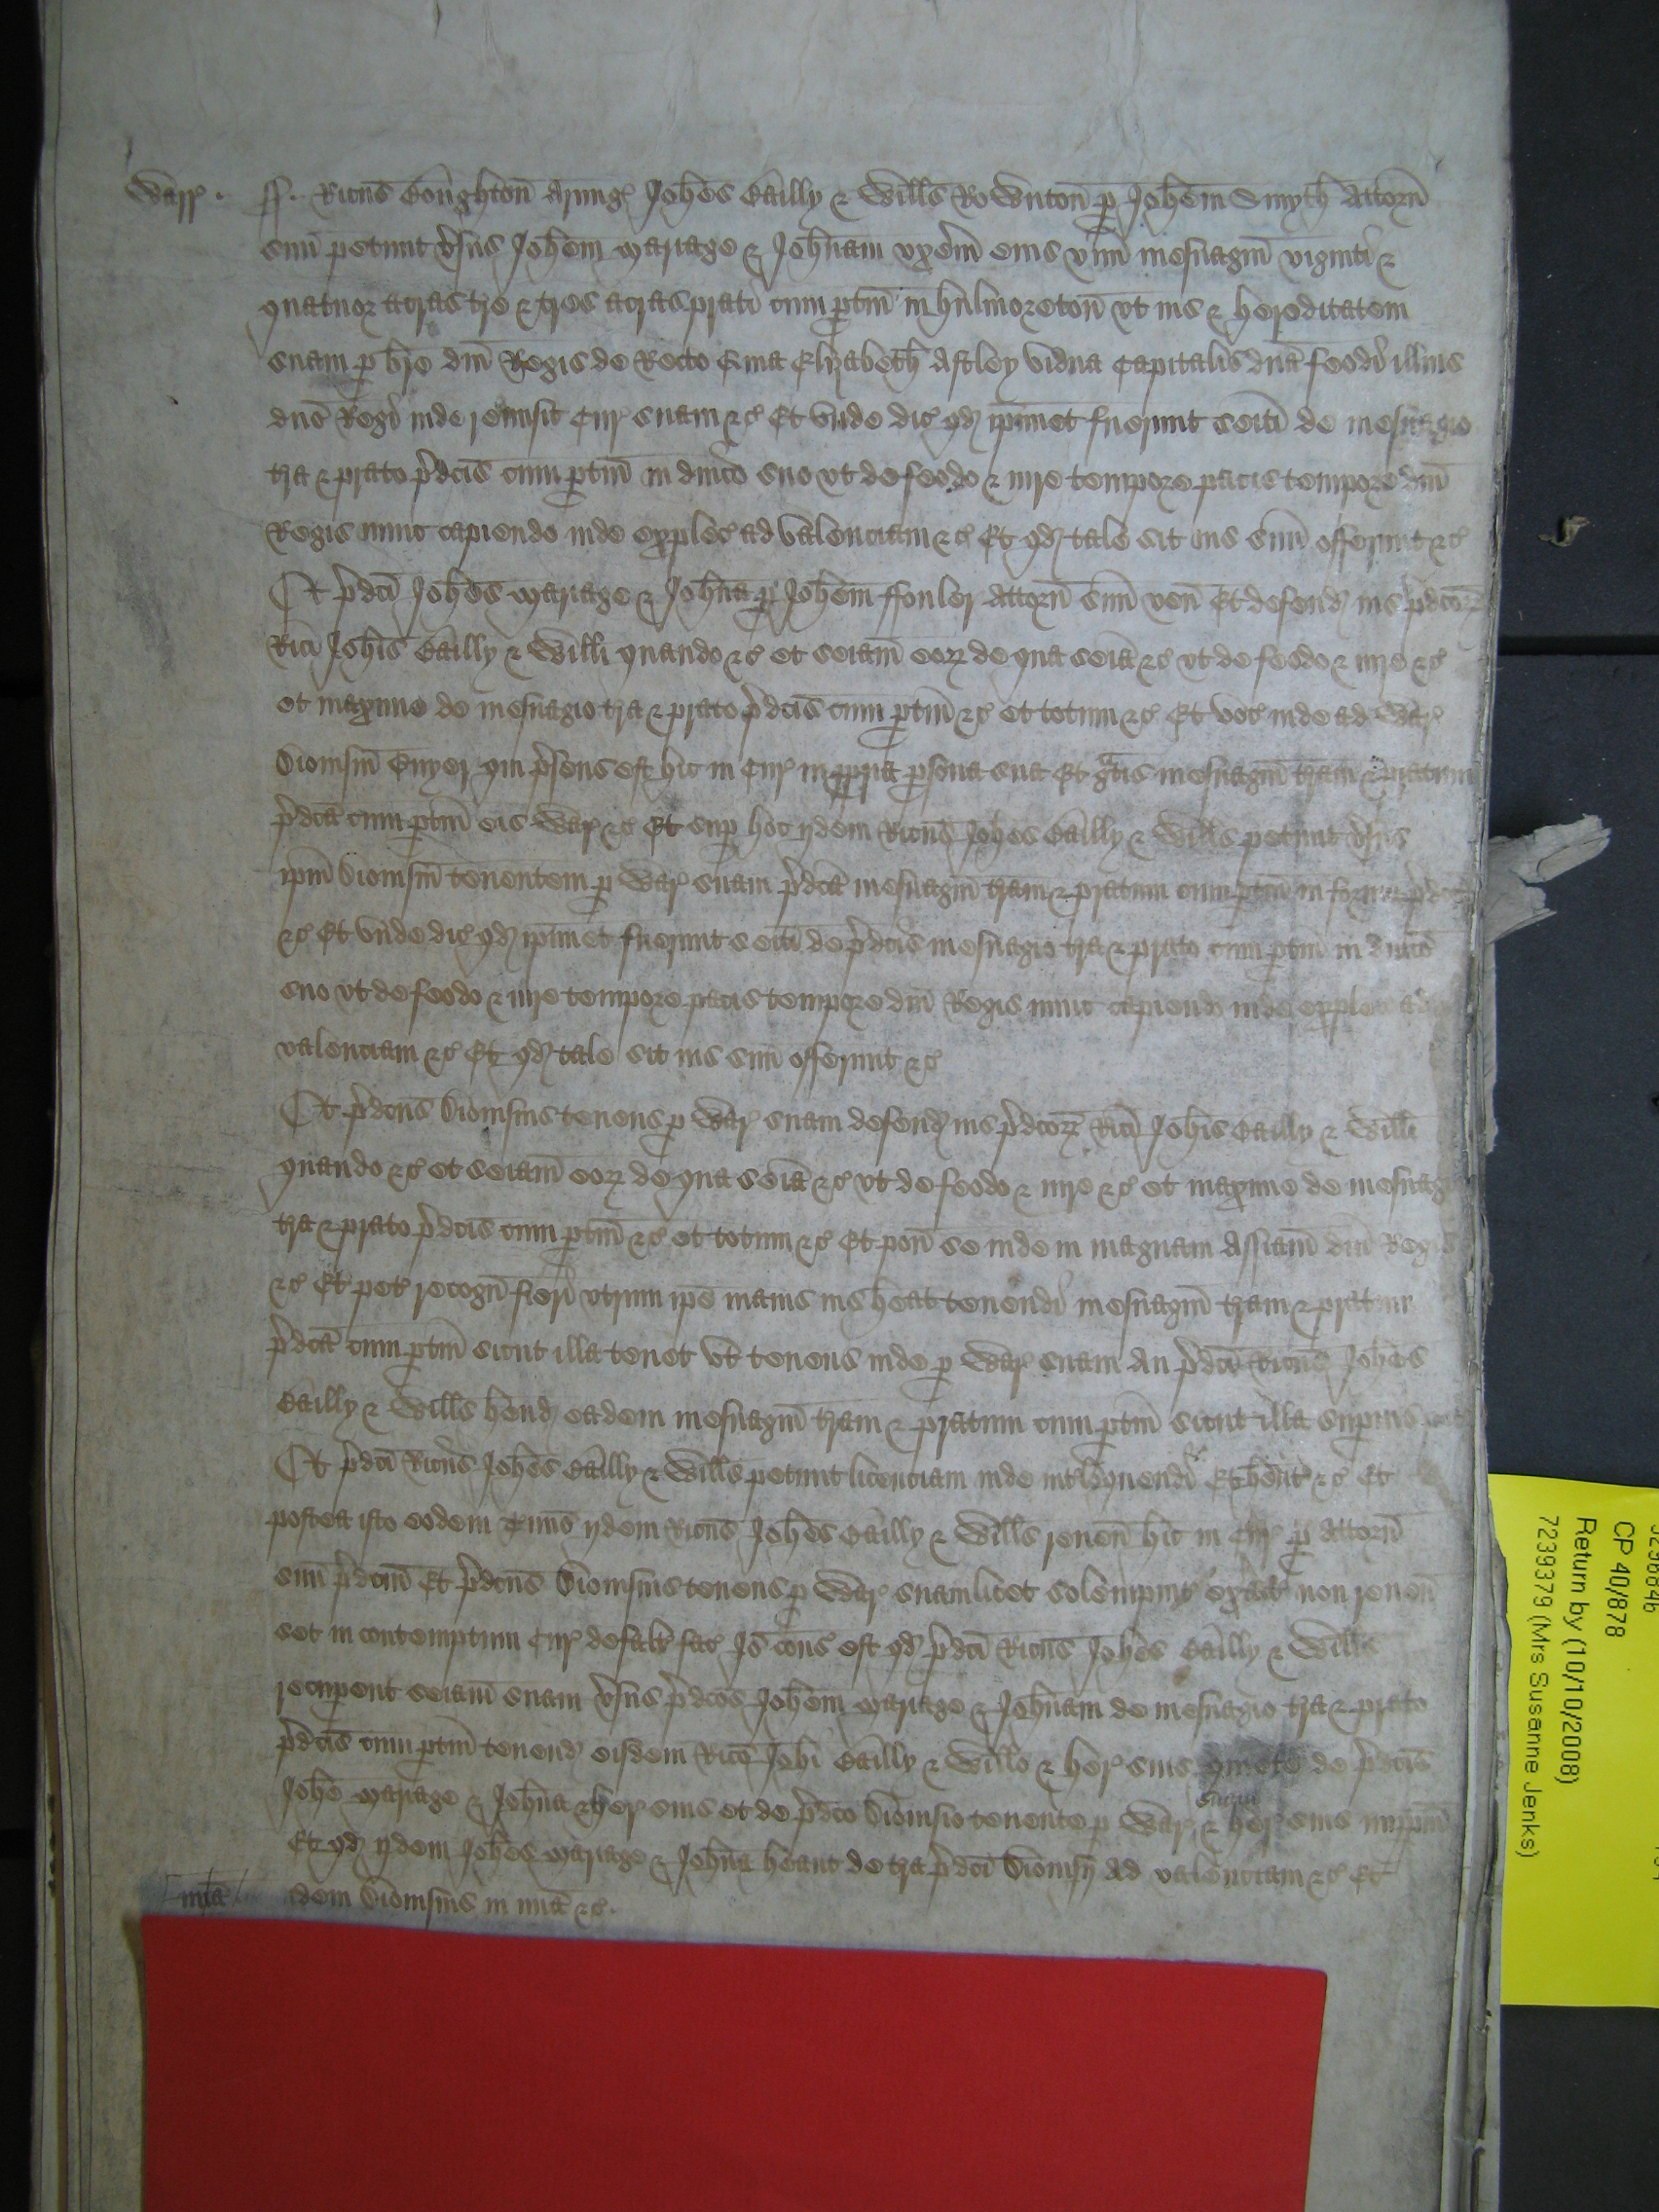 Warr' . ss . Ricūs Boughton Armig' Johēs Bailly & Willūs Rownton p Johēm Smyth Attorñ
suū petunt v'sus Johēm Mariage & Joh'nam vxēm eius vnū mesuagiū viginti &
quatuor acras t're & tres acras prati cum p'tiñ in hulmoreton vt ius & hereditatem
suam p br'e dñi Regis de Recto Quia Elizabeth Astley vidua Capitalis dña feodi illius
dño Regi inde remisit Cur' suam &c Et vnde dic' qd' ip'imet fuerunt seiti de mesuagio
t'ra & prato p'dc̄is cum p'tiñ in dnīco suo vt de feodo & iure tempore pacis tempore dñi
Regis nunc capiendo inde explec' ad valenciam &c Et qd' tale sit ius suū offerunt &c
Et p'dc̄i Johēs Mariage & Joh'na p Johēm ffouler Attorñ suū veñ Et defend' ius p'dc̄or'
Rici Joh'is Bailly & Willī quando &c et seiam eor' de qua seia &c vt de feodo & iure &c
et maxime de mesuagio t'ra & prato p'dc̄is cum p'tiñ &c et totum &c Et voc' inde ad War'
Dionisiū Gnyer qui p'sens est hic in Cur' in ppria p'sona sua Et gratis mesuagiū t'ram & pratum
p'dc̄a cum p'tiñ eis War' &c Et sup hoc ijdem Ricūs Johēs Bailly & Willūs petunt v'sus
ip'm Dionisiū tenentem p War' suam p'dc̄a mesuagiū t'ram & pratum cum p'tiñ in forma p'dc̄a
&c Et vnde dic' qd' ip'imet fuerunt seiti de p'dc̄is mesuagio t'ra & prato cum p'tiñ in dnīco
suo vt de feodo & iure tempore pacis tempore dñi Regis nunc capiend' inde explec' ad
valenciam &c Et qd' tale sit ius suū offerunt &c
Et p'dc̄us Dionisius tenens p War' suam defend' ius p'dc̄or' Rici Joh'is Bailly & Willī
quando &c et seiam eor' de qua seia &c vt de feodo & iure &c et maxime de mesuagio
t'ra & prato p'dc̄is cum p'tiñ &c et totum &c Et poñ se inde in magnam Assisam dñi Regis
&c Et pet' recogñ fieri vtrum ip'e maius ius h'eat tenendi mesuagiū t'ram & pratum
p'dc̄a cum p'tiñ sicut illa tenet vt tenens inde p War' suam An p'dc̄i Ricūs Johēs
Bailly & Willūs h'end' eadem mesuagiū t'ram & pratum cum p'tiñ sicut illa superius
Et p'dc̄i Ricūs Johēs Bailly & Willūs petunt licenciam inde int'loquendi Et h'ent &c Et
postea isto eodem t'mino ijdem Ricūs Johēs Bailly & Willūs reueñ hic in Cur' p Attorñ
suū p'dc̄m Et p'dc̄us Dionisius tenens p War' suam licet solempnit' exact' non reueñ
set in contemptum Cur' defalt' fac' Iō cons' est qd' p'dc̄i Ricūs Johēs Bailly & Willūs
recup'ent seiam suam v'sus p'dc̄os Johēm Mariage & Joh'nam de mesuagio t'ra & prato
p'dc̄is cum p'tiñ tenend' eisdem Rico Joh'i Bailly & Willō & her' suis quiete de p'dc̄is
Joh'e Mariage & Joh'na & her' suis et de p'dc̄o Dionisio tenente p War' suam & her' suis imppm̄
Et qd' ijdem Johēs Mariage & Joh'na h'eant de t'ra p'dc̄i Dionisij ad valenciam &c Et
mīa idem Dionisius in mīa &c .
CP 40/878
Return by (10/10/2008)
7239379 (Mrs Susanne Jenks)